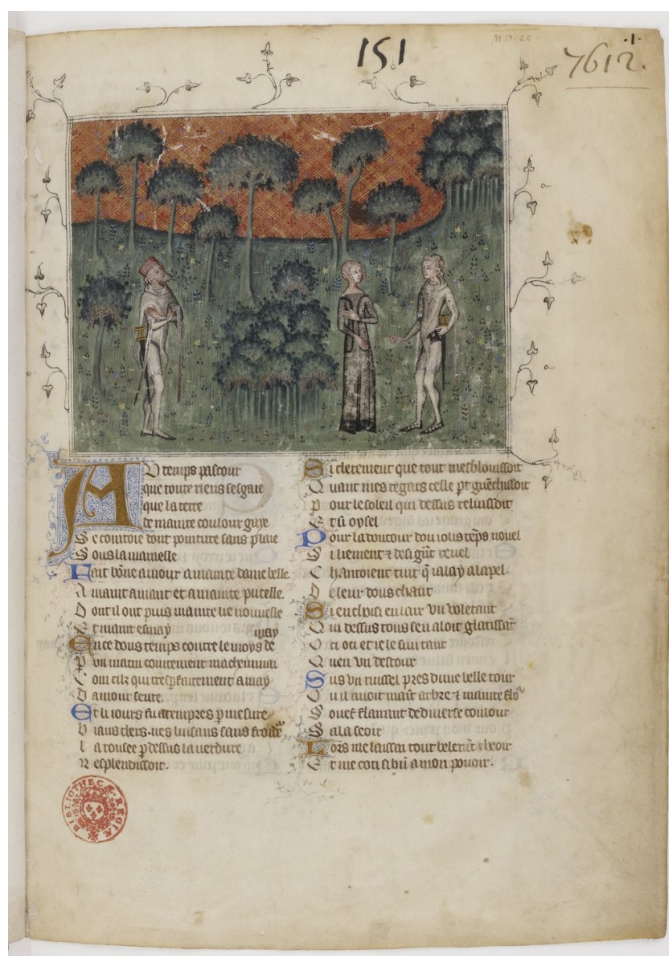 151
.1.
7612.
AU temps pascour
que toute riens sesgaie
que la terre
de mainte coulour gaye
Se cointoie dont pointure sans plaie
Sous la mamelle
Fait bõne amour a mainte dame belle.
A maint amant et a mainte pucelle.
Dont il ont puis mainte lie nouuelle
Et maint esmay
may
En ce dous temps contre le moys de
un matin cointement macesmai
Com cilz qui tresp̃faitement amay
Damour seure.
Et li iours fu attempres p mesure
Biaus clers nes luisans sans froidẽ
La rousee p dessus la verdure
Resplendissoit.
Si clerement que tout mesblouissoit
Quant mes regars celle pt guenchissoit
Pour le soleil qui dessus reluissoit
Et oysel
Pour la doucour dou iolis tẽps nouel
Si liement reuel
Chantoient tuit q̃ ialay alapel
De leur dous chant
Si en choisi en lair vn voletant
Qui dessus tous sen aloit glatissãt
Oci oci et ie le sui tant
Quen vn destour
Sus vn ruissel pres dune belle tour
Ou il auoit maĩt arbre ⁊ mainte flor
Souef flairant de diuerse coulour
Sala seoir
Lors me laissai tout belemẽt cheoir
Et me coti si biẽ a mon pouoir.
BIBLIOTHECÆ REGIÆ